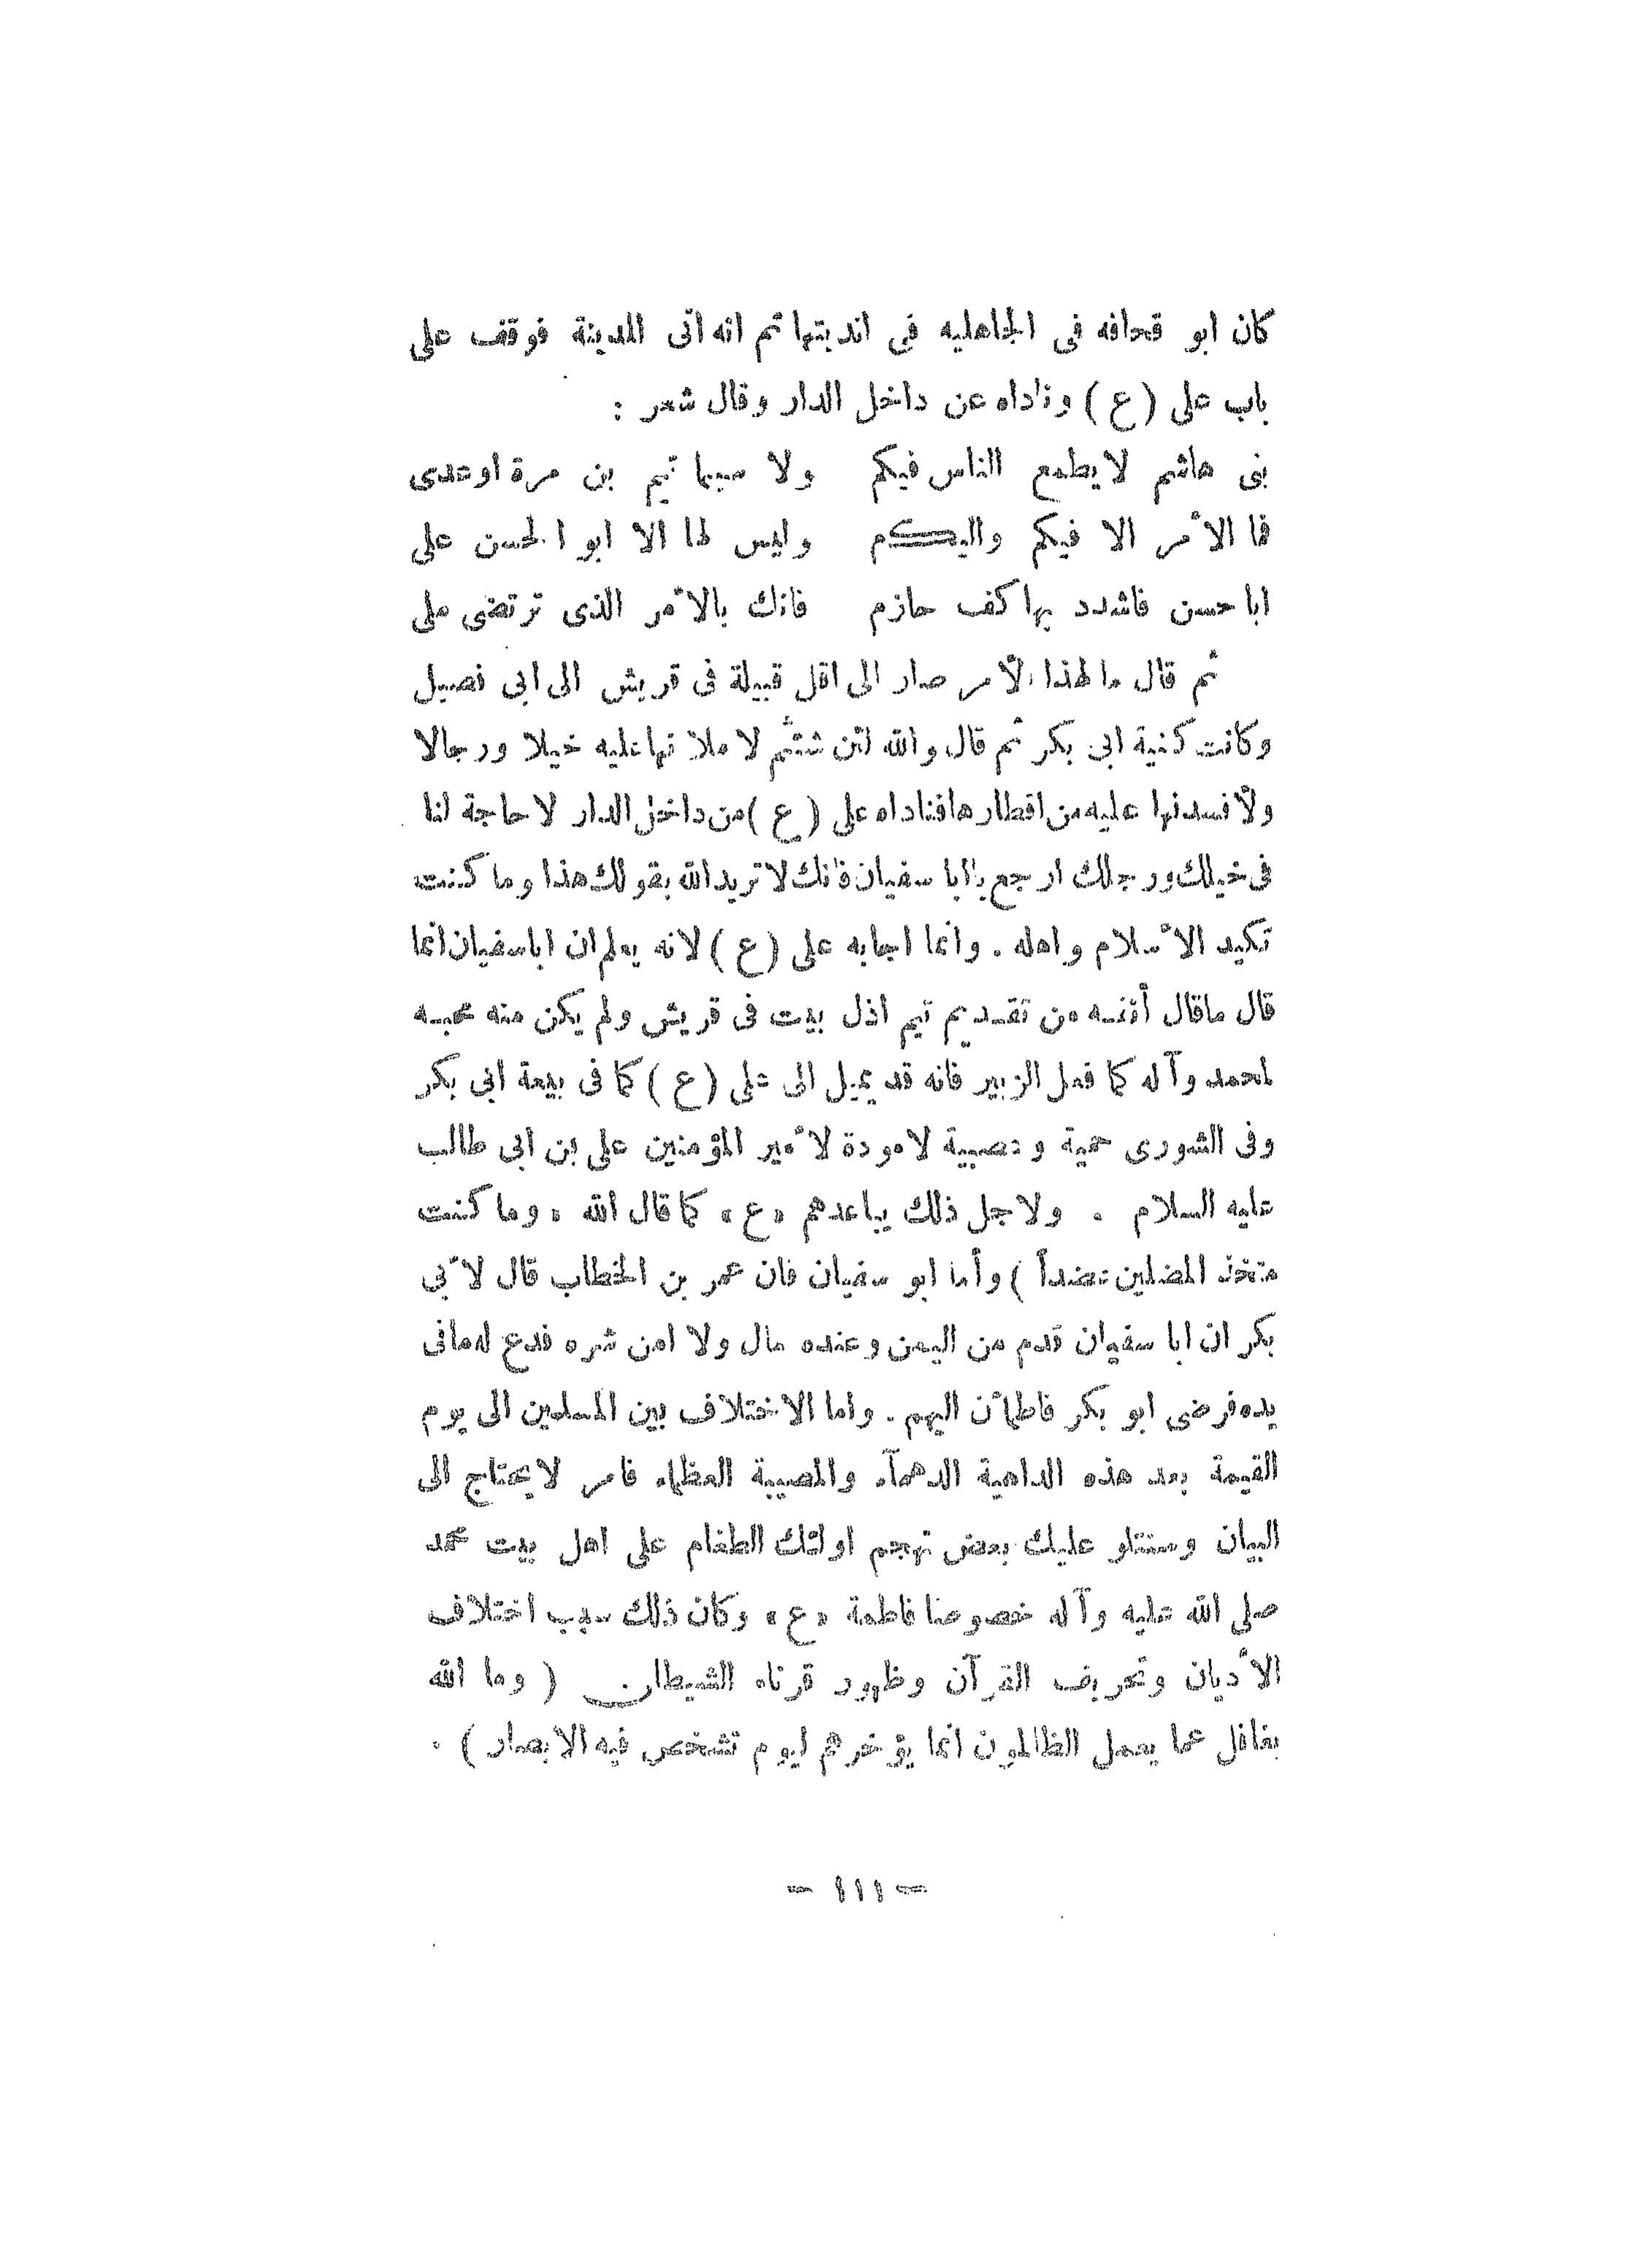 كان ابو قحافه فى الجاهليه فى انديتها ثم انه اتى المدينة فوقف على
باب على ( ع ) وناداه عن داخل الدار وقال شعر :
بنى هاشم لايطمع الناس فيكم ولا سيما تيم بن مرة اوعدى
فما الأمر الا فيكم واليكم وليس لها الا ابو الحسن على
ابا حسن فاشدد بها كف حازم فانك بالأمر الذى ترتضى ملى
ثم قال ما لهذا الأمر صار الى اقل قبيلة فى قريش الى ابى فصيل
وكانت كنية ابى بكر ثم قال والله لئن شئتم لاملانها عليه خيلا ورجالا
ولأفسدنها عليه من اقطارها فناداه على ( ع ) من داخل الدار لا حاجة لنا
فى خيلك ورجلك ارجع يا ابا سفيان فانك لا تريد الله بقولك هذا وما كنت
تكيد الأسلام واهله . وانما اجابه على ( ع ) لانه يعلم ان اباسفيان انما
قال ماقال أنفه من تقديم تيم اذل بيت فى قريش ولم يكن منه محبه
لمحمد وآله كما فعل الزبير فانه قد يميل الى على ( ع ) كما فى بيعة ابى بكر
وفى الشورى حمية وعصبية لامودة لأمير المؤمنين على بن ابى طالب
عليه السلام . ولاجل ذلك يباعدهم «ع» كما قال الله « وما كنت
متخذ المضلين عضداً ) وأما ابو سفيان فان عمر بن الخطاب قال لأبى
بكر ان ابا سفيان قدم من اليمن وعنده مال ولا امن شره فدع له مافى
يده فرضى ابو بكر فاطمأن اليهم . واما الاختلاف بين المسلمين الى يوم
القيمة بعد هذه الداهية الدهمآء والمصيبة العظماء فامر لايحتاج الى
البيان وسنتلو عليك بعض تهجم اولئك الطغام على اهل بيت محمد
صلى الله عليه وآله خصوصا فاطمة «ع» وكان ذلك سبب اختلاف
الأديان وتحريف القرآن وظهور قرناء الشيطان ( وما الله
بغافل عما يعمل الظالمون انما يؤخرهم ليوم تشخص فيه الابصار ) .
- ١١١ -